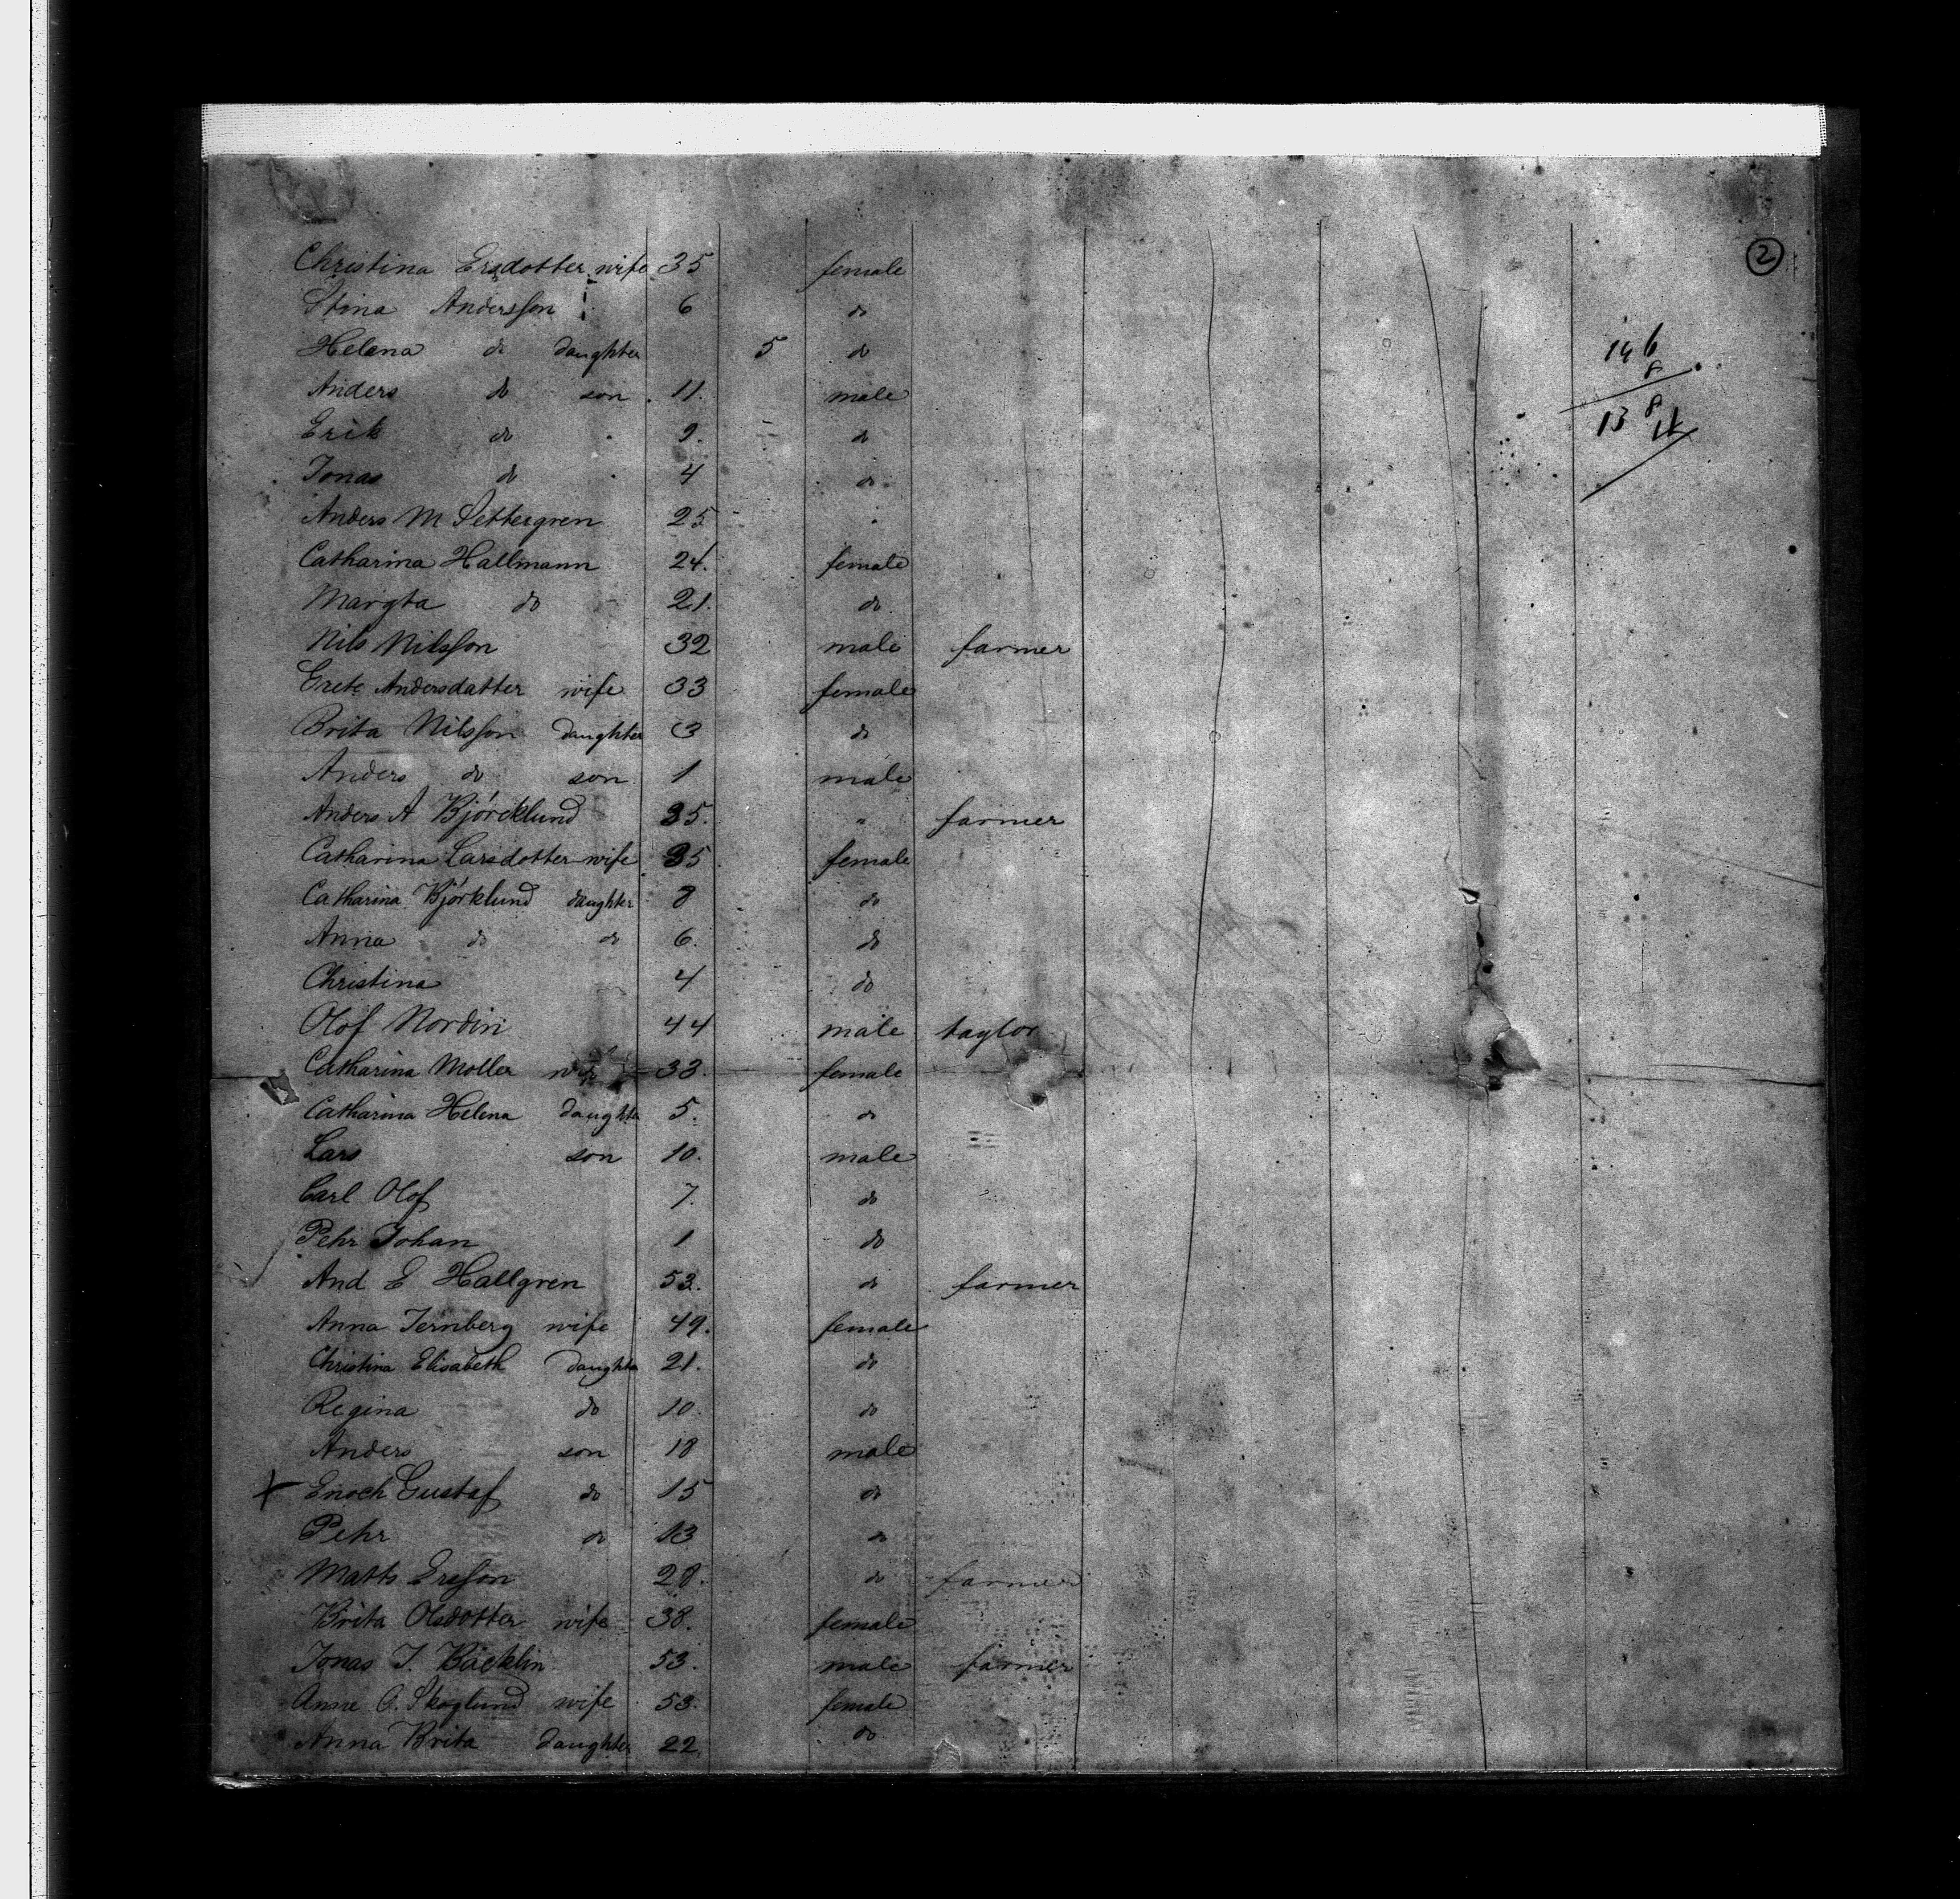 2
Christina Ersdotter wife 35 female
Stina Andersson 6 do
Helena do daughter 5 do
Anders do son 11. male
Erik do 9. do
Jonas do 4 do
Anders M Settergren 25
Catharina Hallmann 24. female
Margta do 21. do
Nils Nilsson 32 male farmer
Grete Andersdatter wife 33 female
Brita Nilsson daughter 3 do
Anders do son 1 male
Anders A Björcklund 35. " farmer
Catharina Larsdotter wife 35 female
Catharina Björklund daughter 8 do
Anna do do 6. do
Christina 4 do
Olof Nordin 44 male taylor
Catharina Moller wife 33. female
Catharina Helena daughter 5. do
Lars son 10. male
Carl Olof 7. do
Pehr Johan 1 do
And E Hallgren 53. do farmer
Anna Jernberg wife 49. female
Christina Elisabeth daughter 21. do
Regina do 10. do
Anders son 18 male
Enoch Gustaf do 15 do
Pehr do 13 do
Matts Ersson 28. do farmer
Brita Olsdotter wife 38. female
Jonas J. Bäcklin 53. male farmer
Anne C. Skoglund wife 53. female
Anna Brita daughter 22. do
146
8
138